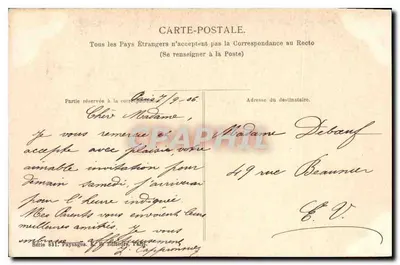 CARTE-POSTALE.
Tous les Pays Étrangers n'acceptent pas la Correspondance au Recto
(Se renseigner à la Poste)
Partie réservée à la
Adresse du destinataire.
Paris 7/9-06
Chère Madame,
Je vous remercie et
accepte avec plaisir votre
aimable invitation pour
demain samedi, j'arriverai
pour l'heure indiquée
Mes Parents vous envoient leurs
meilleures amitiés. Je vous
embrasse affectueusement
Madame Debœuf
49 rue Beaunier
E. V.
CARPHIL
Série 551. Paysages.